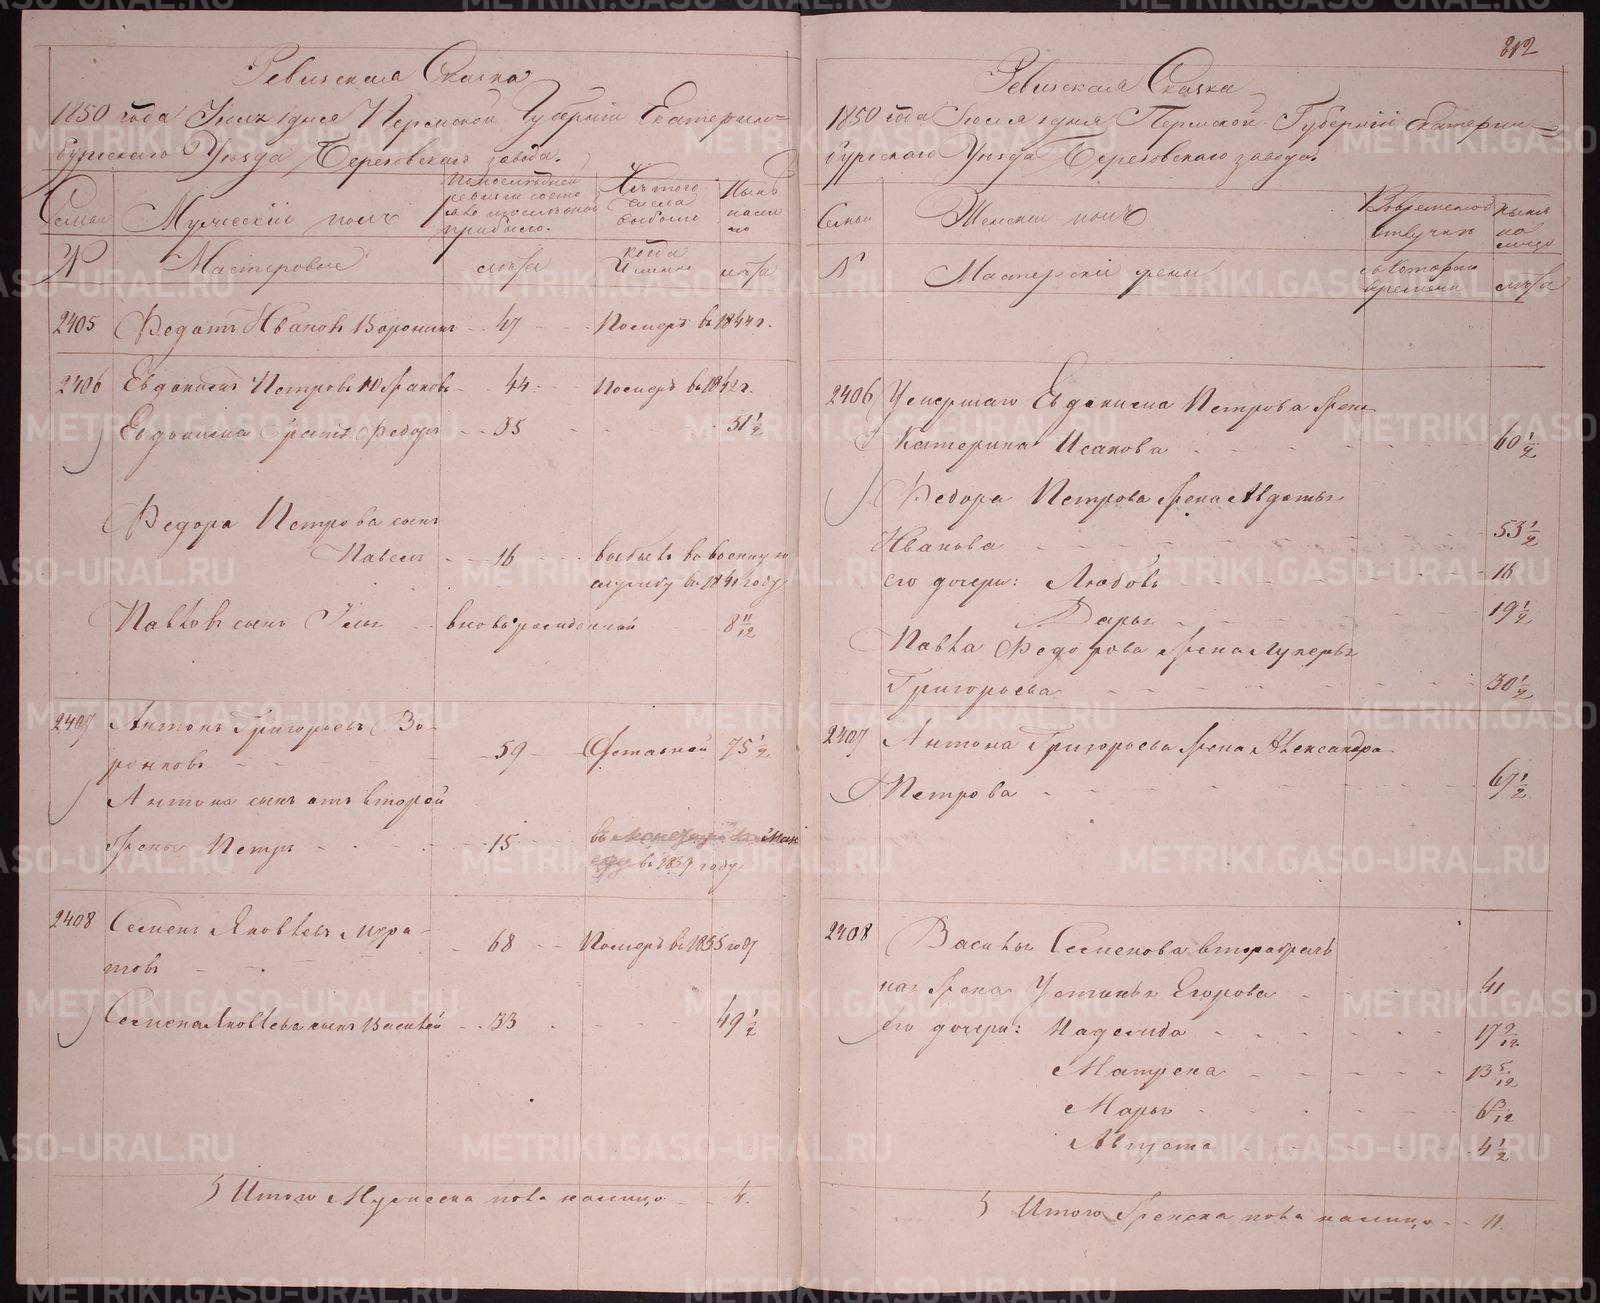 Ревизская Сказка
1850 года Июля 1 дня Пермской Губерніи Екатерин=
бургскаго Уѣзда Березовскаго завода.
Семьи
Мужескій полъ
По последней
ревизіи состо
яло и после оной
прибыло.
Изъ того
числа
выбыло
Нынѣ
на ли
цо
№
Мастеровые
лѣта
когда
Именно
лѣта
2405 Федотъ Ивановъ Воронинъ 47 Померъ въ 1844 г.
2406 Евдокимъ Петровъ Южаковъ 44 Померъ въ 1842 г.
Евдокима братъ Федоръ 35 51 1/2
Федора Петрова сынъ
Павелъ 16 выбылъ въ военную
службу въ 1841 году
Павловъ сынъ Илья вновь рожденной 8 11/12
2407 Антонъ Григорьевъ Во-
ронковъ 59 Отставной 75 1/2
Антона сынъ отъ второй
жены Петръ 15 въ
въ 1839 году
2408 Семенъ Яковлевъ Мура-
товъ 68 Померъ въ 1855 году
Семена Яковлева сынъ Василей 33 49 1/2
Итого Мужеска пола налицо 4.
812
Ревизская Сказка
1850 года Июля 1 дня Пермской Губерніи Екатерин=
бургскаго Уѣзда Березовскаго завода.
Семьи
Женскій полъ
Во временной
отлучкѣ
Нынѣ
на
лицо
№
Мастерскія жены
съ котораго
времени
лѣта
2406 Умершаго Евдокима Петрова жена
Катерина Исакова 60 1/2
Федора Петрова жена Авдотья
Иванова 53 1/2
его дочери: Любовь 16
Дарья 19 1/2
Павла Федорова жена Лукерья
Григорьева 30 1/2
2407 Антона Григорьева жена Александра
Петрова 67 1/2
2408 Василья Семенова втора
ная жена Устинья Егорова 41
его дочери: Надежда 17 9/12
Матрена 13 5/12
Марья 6 /12
Августа 4 1/2
Итого Женска пола налицо 11.
METRIKI.GASO-URAL.RU